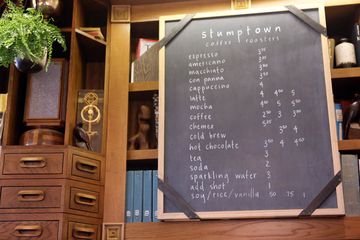 stumptown
coffee roasters
espresso 3⁰⁰
americano 3⁰⁰
macchiato 3⁵⁰
con panna 3⁵⁰
cappuccino 4
latte 4 4⁵⁰ 5
mocha 4⁵⁰ 5 5⁵⁰
coffee 2⁵⁰ 3 3⁵⁰
chemex 5²⁵
cold brew 3⁵⁰ 4
hot chocolate 3⁵⁰ 4 4⁵⁰
tea 3
soda 2
sparkling water 3
add shot 1
soy/rice/vanilla 50 75 1